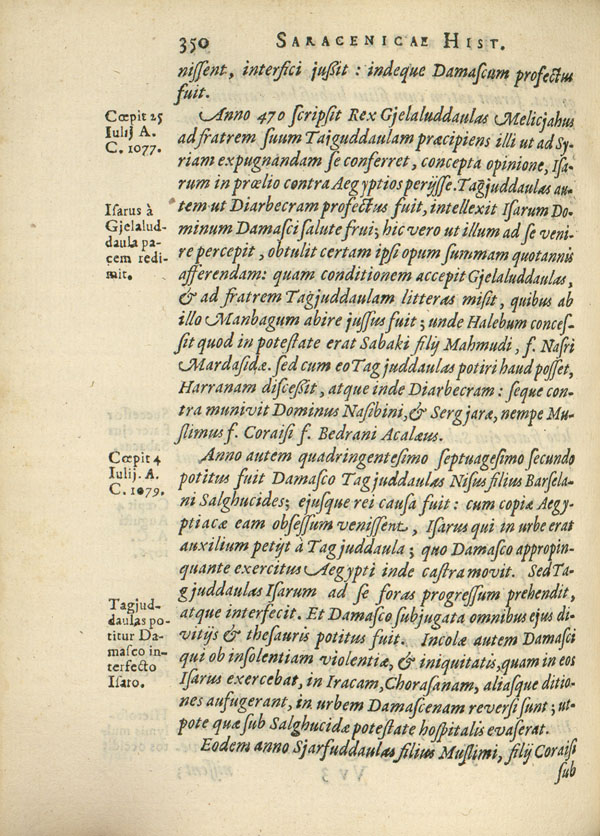 350 SARACENICAE HIST.
nissent, interfici jußit : indeque Damascum profectus
fuit.
Cœpit 25
Iulij A.
C. 1077.
Anno 470 scripsit Rex Gjelaluddaulas Melicjahus
ad fratrem suum Tajguddaulam præcipiens illi ut ad Sy-
riam expugnandam se conferret, concepta opinione, Isa-
rum in prœlio contra Aegyptios perijsse. Tagjuddaulas au-
Isarus à
Gjelalud-
daula pa-
cem redi-
mit.
tem ut Diarbecram profectus fuit, intellexit Isarum Do-
minum Damasci salute frui; hic vero ut illum ad se veni-
re percepit, obtulit certam ipsi opum summam quotannis
afferendam: quam conditionem accepit Gjelaluddaulas,
& ad fratrem Tagjuddaulam litteras misit, quibus ab
illo Manbagum abire jussus fuit; unde Halebum conces-
sit quod in potestate erat Sabaki filij Mahmudi, f. Nasri
Mardasidæ. sed cum eo Tagjuddaulas potiri haud posset,
Harranam disceßit, atque inde Diarbecram: seque con-
tra munivit Dominus Nasibini, & Sergjaræ, nempe Mu-
slimus f. Coraisi f. Bedrani Acalæus.
Cœpit 4
Iulij. A.
C. 1079.
Anno autem quadringentesimo septuagesimo secundo
potitus fuit Damasco Tagjuddaulas Nisus filius Barsela-
ni Salghucides; ejusque rei causa fuit: cum copiæ Aegy-
ptiacæ eam obsessum venissent, Isarus qui in urbe erat
auxilium petijt à Tagjuddaula; quo Damasco appropin-
quante exercitus Aegypti inde castra movit. Sed Ta-
gjuddaulas Isarum ad se foras progressum prehendit,
Tagjud-
daulas po-
titur Da-
masco in-
terfecto
Isaro.
atque interfecit. Et Damasco subjugata omnibus ejus di-
vitijs & thesauris potitus fuit. Incolæ autem Damasci
qui ob insolentiam violentiæ, & iniquitatis, quam in eos
Isarus exercebat, in Iracam, Chorasanam, aliasque ditio-
nes aufugerant, in urbem Damascenam reversi sunt; ut-
pote quæ sub Salghucidæ potestate hospitalis evaserat.
Eodem anno Sjarfuddaulas filius Muslimi, filij Coraisi
sub